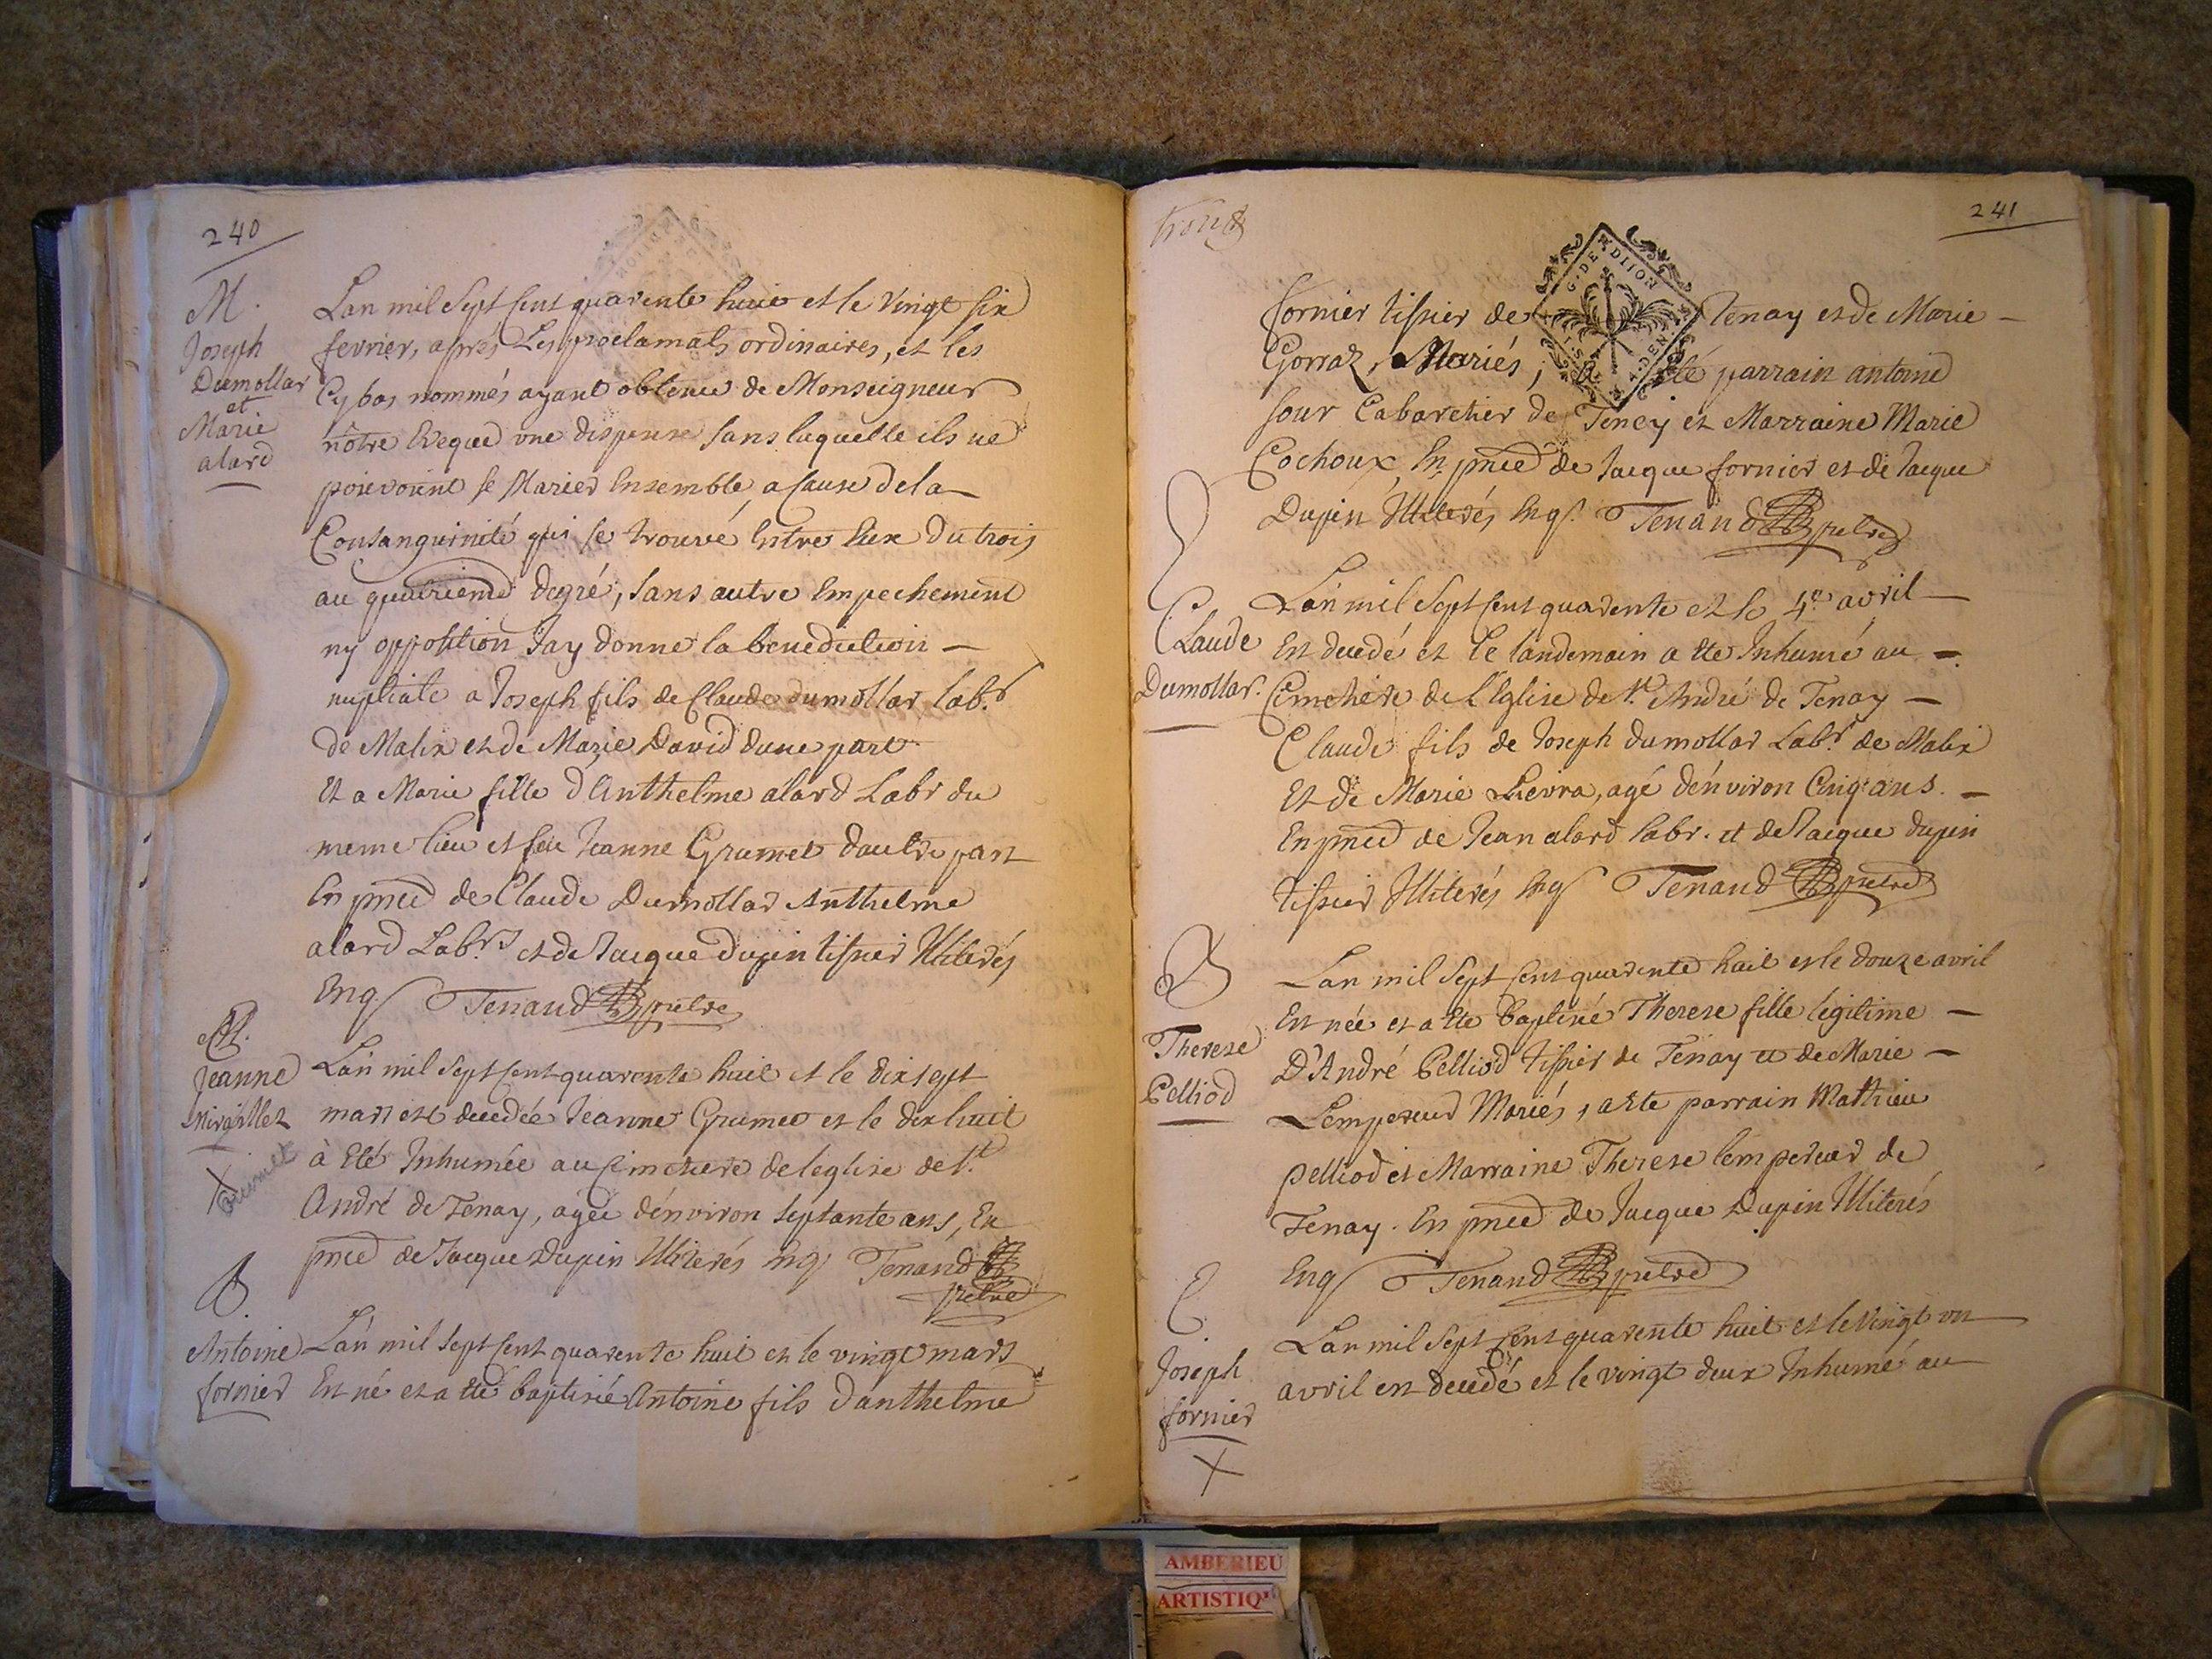 240
M.
Joseph
Dumollar
et
Marie
alard
Lan mil sept cent quarente huit et le vingt six
fevrier, aprés Les proclamats ordinaires, et les
Cy bas nommés ayant obtenu de Monseigneur
nôtre Eveque une dispense sans laquelle ils ne
pouvoint se Marier Ensemble a cause de la
Consanguinité qui se trouve Entre Eux du trois
au quatrieme degré, sans autre Empechement
ny opposition Jay donne la benediction
nuptiale a Joseph fils de Claude dumollar lab.r
de Malix et de Marie David dune part
Et a Marie fille d'Anthelme alard Labr du
meme lieu et feu Jeanne Grumet dautre part
En pnce de Claude Dumollar Anthelme
alard Lab.rs et de Jacque dupin tissier Illiterés
Enq. Tenand ptre
M.
Jeanne
Miraillet
X
Grumet
Lan mil sept cent quarente huit et le dix sept
mars est decedée Jeanne Grumet et le dix huit
à Eté Inhumée au Cimetiere de leglise de St
André de Tenay, agée d'environ septante ans, En
pnce de Jacque Dupin Illiterés Enq. Tenand
ptre
B.
Antoine
fornier
Lan mil sept cent quarente huit et le vingt mars
Est né et a eté baptisé Antoine fils danthelme
241
G. DE DIJON
fornier tissier de Tenay et de Marie
Gorraz, Mariés, a eté parrain antoine
four Cabaretier de Teney et Marraine Marie
Cochoux, En pnce de Jacque fornier et de Jacque
Dupin Illiterés Enq. Tenand ptre
C.
Claude
Dumollar.
Lan mil sept cent quarente et le 4e avril
Est decedé et le landemain a ete Inhumé au
Cimetiere de l'Eglise de St. André de Tenay
Claude fils de Joseph dumollar Lab.r de Malix
Et de Marie Lievra, agé d'environ Cinq ans.
En pnce de Jean alard labr. et de Jacque dupin
tissier Illiterés Enq Tenand ptre
B
Therese
Pelliod
Lan mil sept cent quarente huit et le douze avril
Est née et a ete baptisé Therese fille legitime
D'André Pelliod tissier de Tenay et de Marie
Lempereur Mariés, a ete parrain Mathieu
pelliod et Marraine Therese lempereur de
Tenay. En pnce de Jacque Dupin Illiterés
Enq Tenand ptre
C.
Joseph
fornier
X
Lan mil sept cent quarente huit et le vingt un
avril est decedé et le vingt deux Inhumé au
AMBERIEU
ARTISTIQ